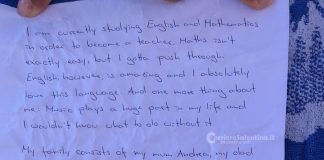 I am currently studying English and Mathematics
in order to become a teacher. Maths isn't
exactly easy, but I gotta push through.
English however is amazing and I absolutely
love this language. And one more thing about
me: Music plays a huge part in my life and
I wouldn't know what to do without it.
CorriereSalentino.it
My family consists of my mum Andrea, my dad